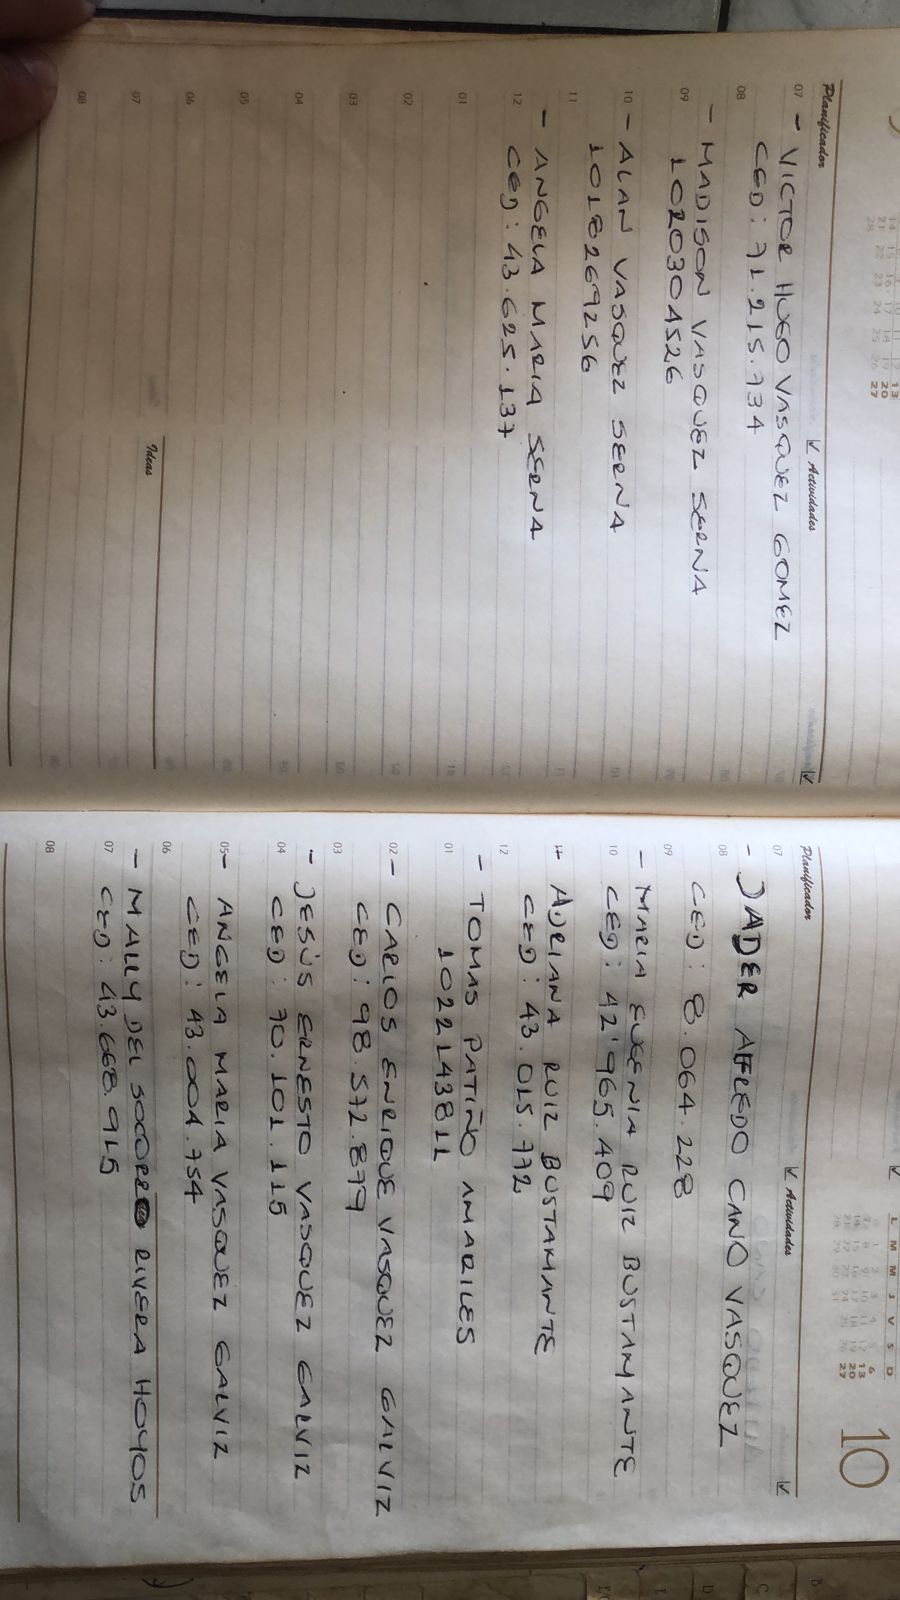 Planificador
Actividades
07 - VICTOR HUGO VASQUEZ GOMEZ
CED: 71.215.734
08
- MADISON VASQUEZ SERNA
09 1020304526
10 - ALAN VASQUEZ SERNA
1018269256
11
- ANGELA MARIA SERNA
12 CED: 43.625.137
01
02
03
04
05
06
Ideas
07
08
10
L M M J V S D
6
13
20
27
Planificador
Actividades
07
- JADER AFREDO CANO VASQUEZ
08
CED: 8.064.228
09
- MARIA EUGENIA RUIZ BUSTAMANTE
10 CED: 42'965.409
11 - ADRIANA RUIZ BUSTAMANTE
CED: 43.015.772
12
- TOMAS PATIÑO AMARILES
01 1022143811
02 - CARLOS ENRIQUE VASQUEZ GALVIZ
CED: 98.572.879
03
- JESÚS ERNESTO VASQUEZ GALVIZ
04 CED: 70.101.115
05 - ANGELA MARIA VASQUEZ GALVIZ
CED: 43.004.754
06
- MALLY DEL SOCORRO RIVERA HOYOS
07 CED: 43.668.915
08